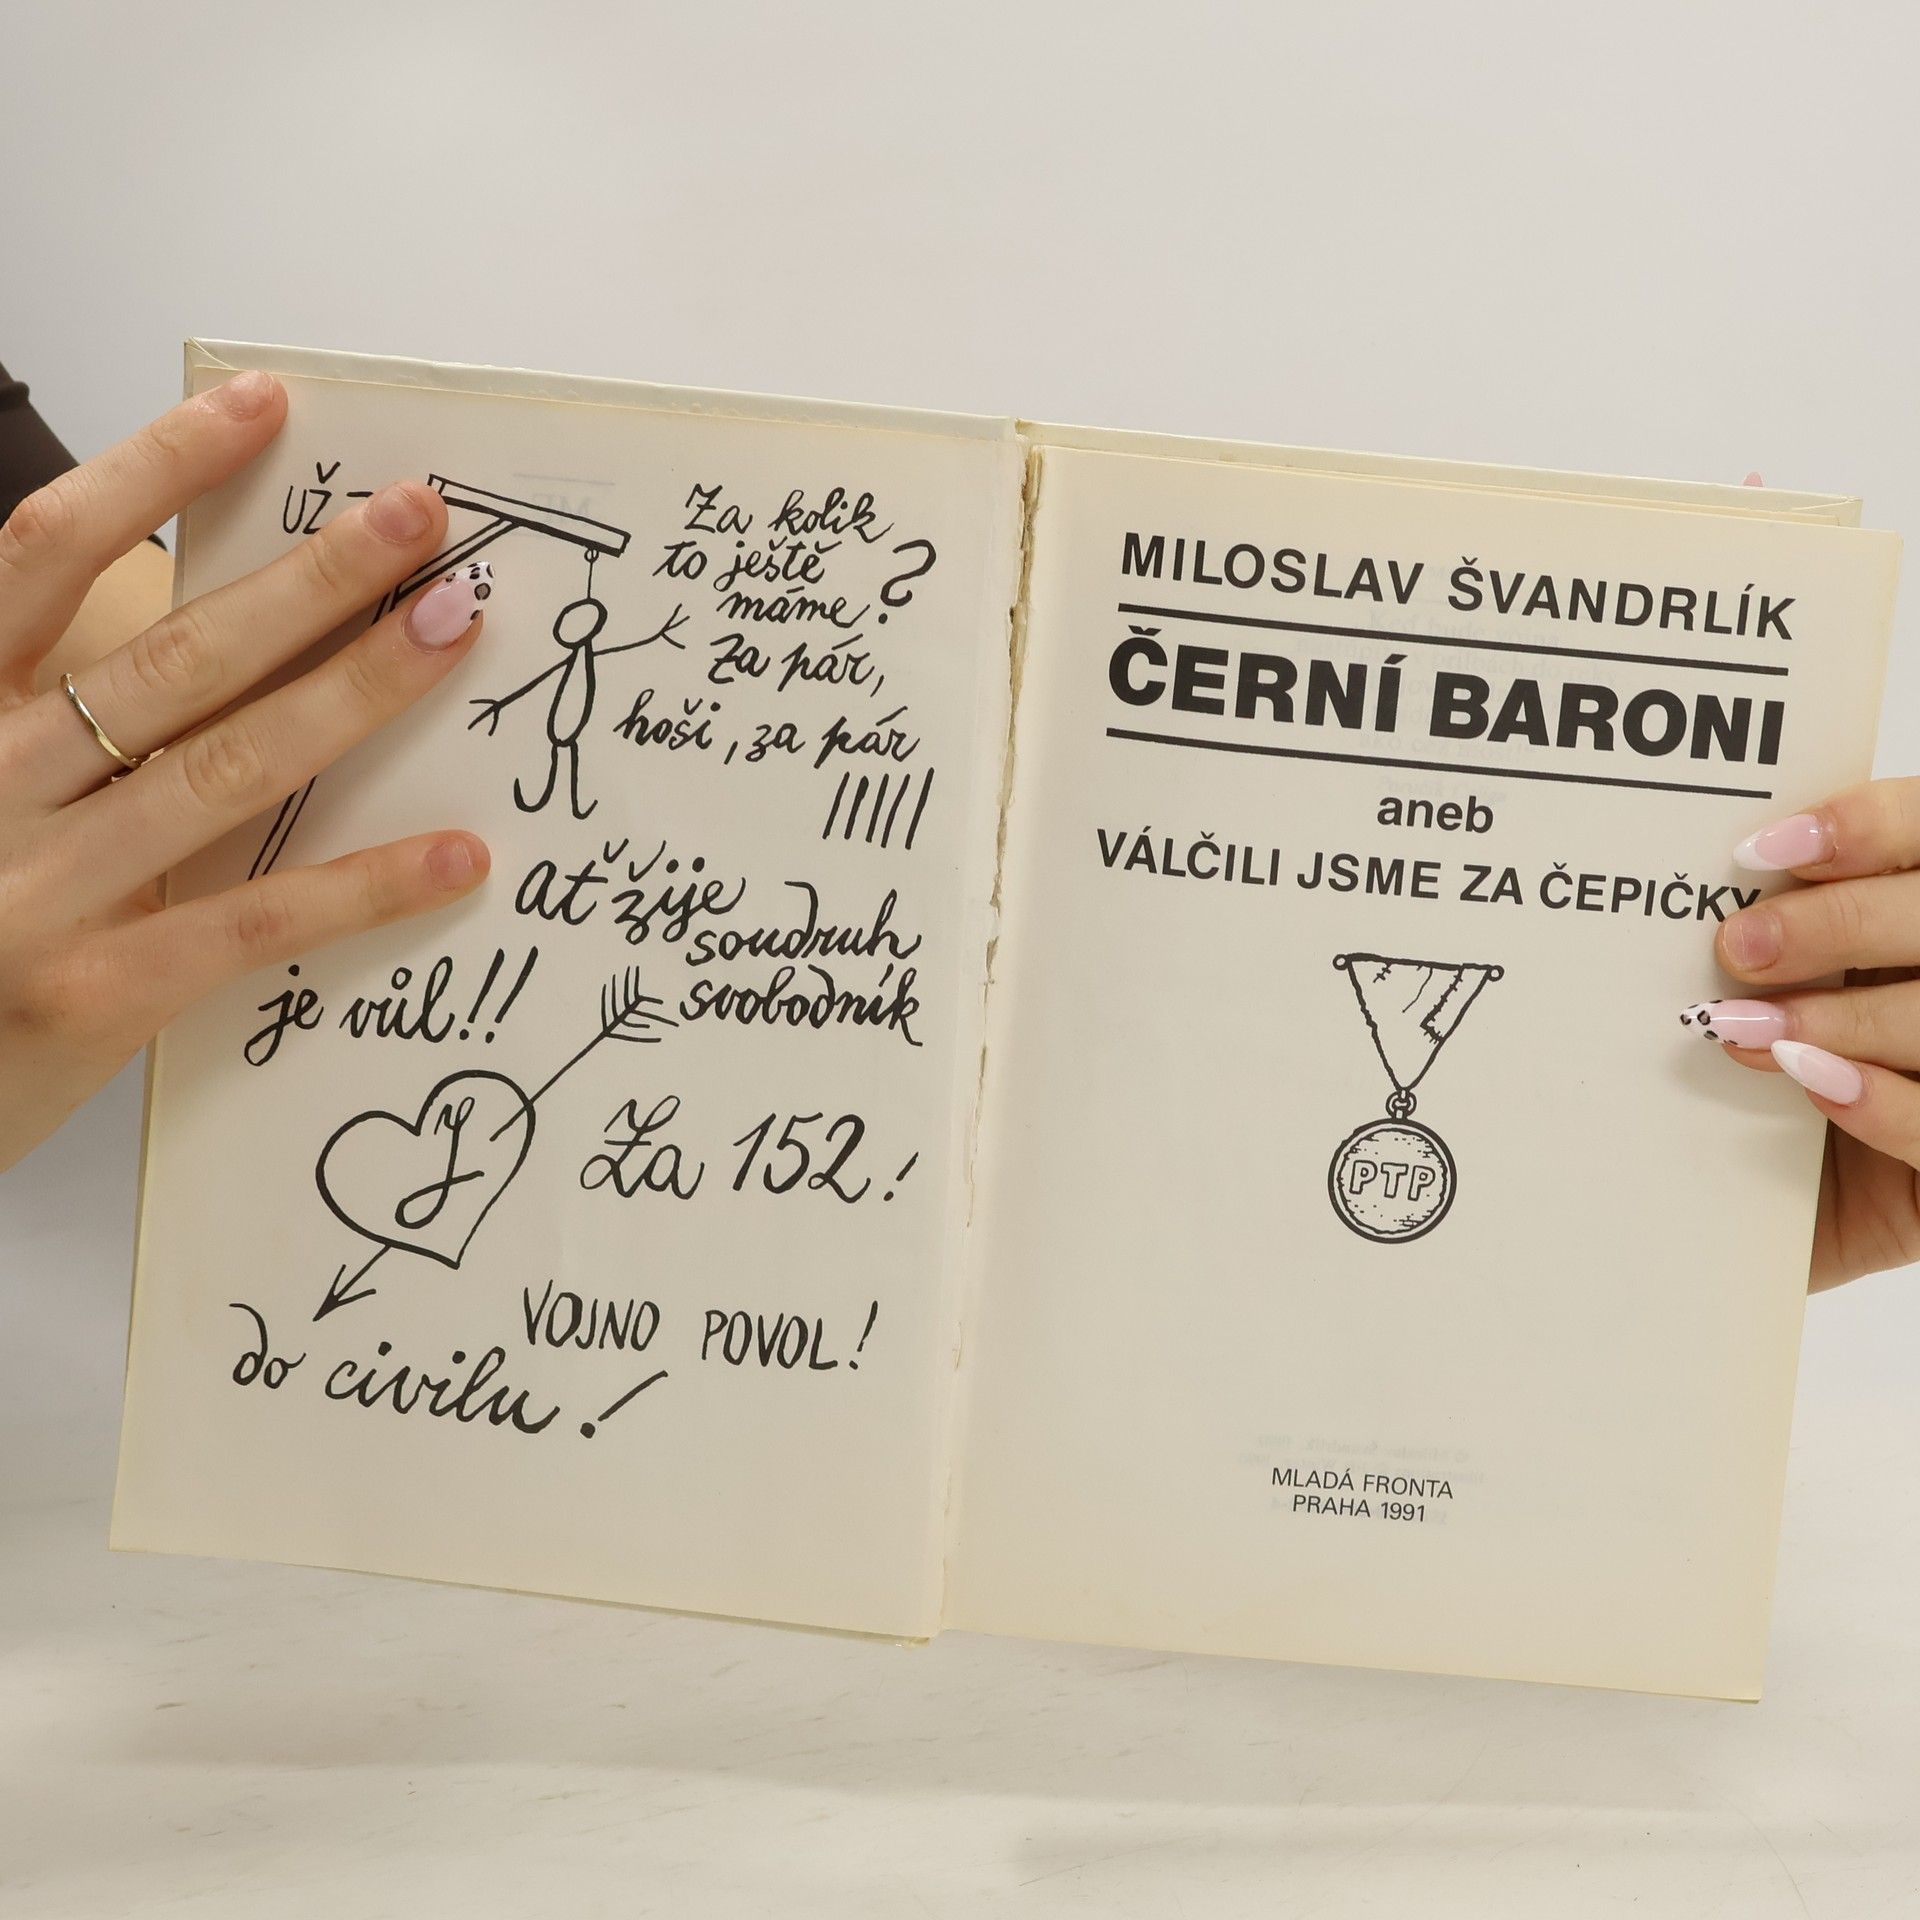 UŽ
Za kolik
to ještě
máme?
Za pár,
hoši, za pár
ať žije
soudruh
svobodník
je vůl!!
Za 152!
VOJNO POVOL!
do civilu!
MILOSLAV ŠVANDRLÍK
ČERNÍ BARONI
aneb
VÁLČILI JSME ZA ČEPIČKY
PTP
MLADÁ FRONTA
PRAHA 1991